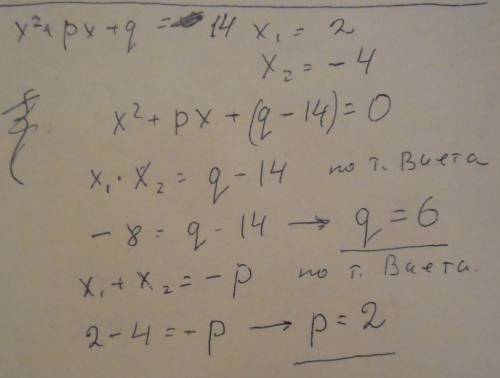 x²+px+q = 14 x₁ = 2
x₂ = -4
x² + px + (q - 14) = 0
x₁ · x₂ = q - 14 по т. Виета
-8 = q - 14 → q = 6
x₁ + x₂ = -p по т. Виета.
2 - 4 = -p → p = 2